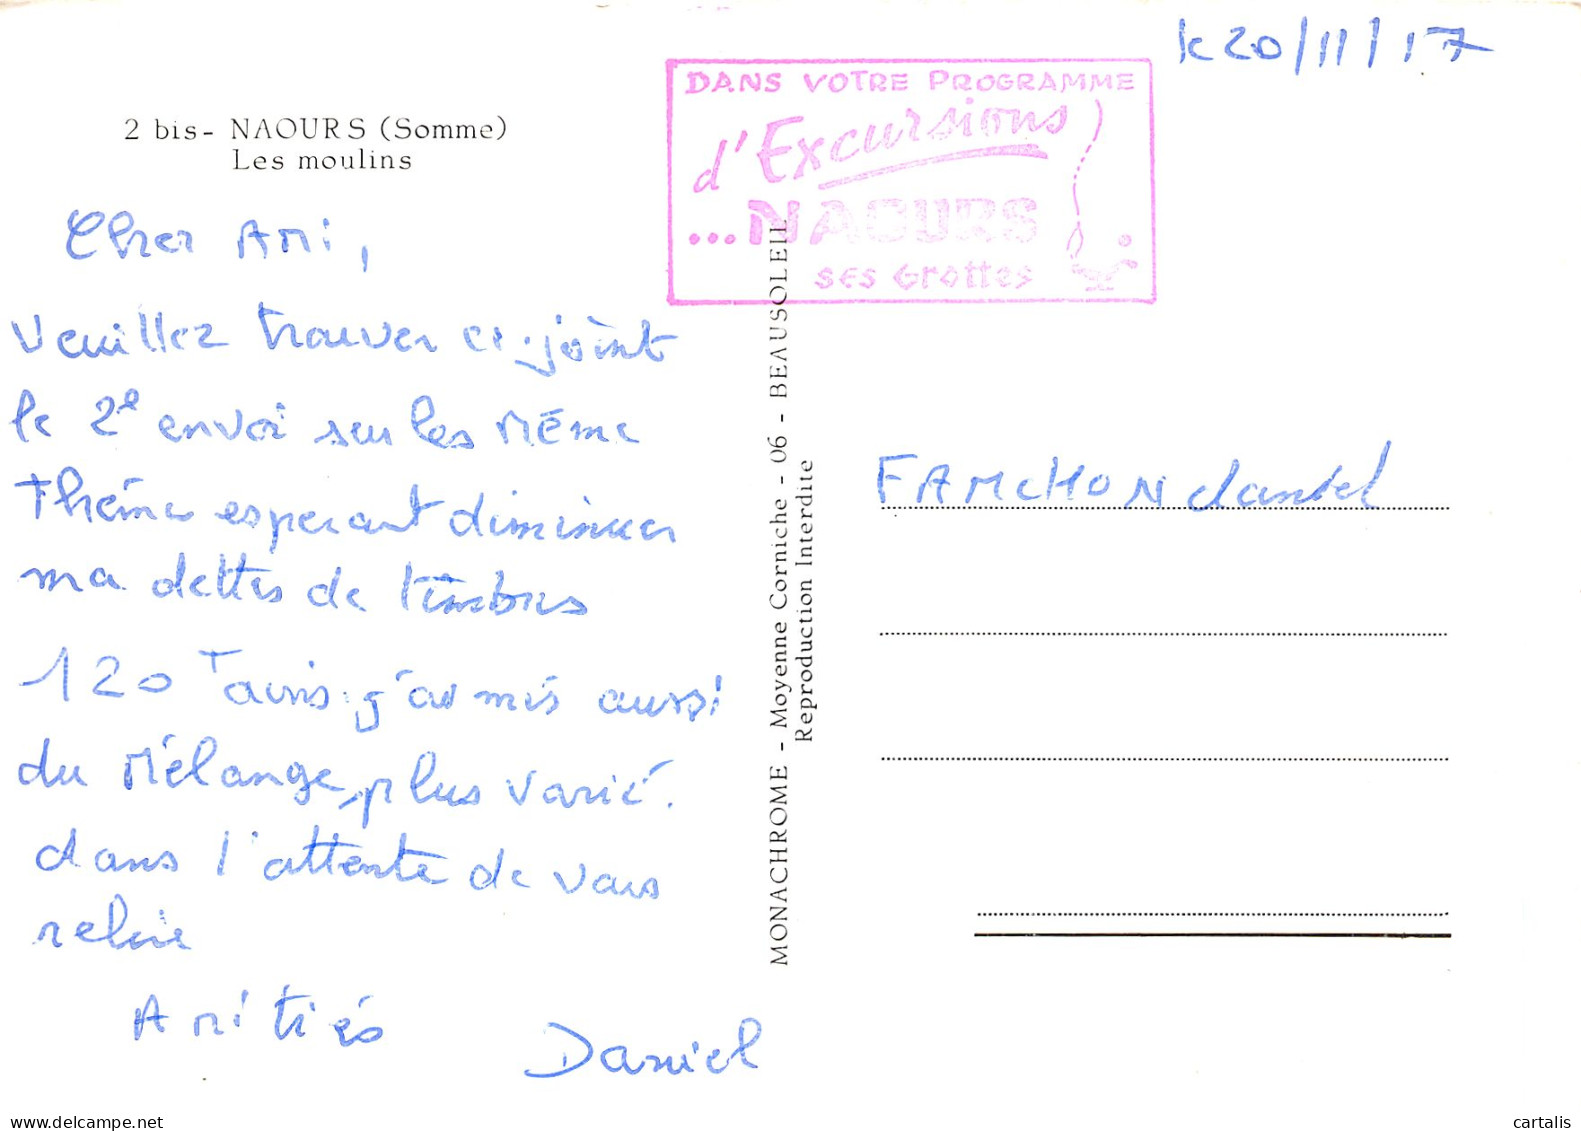 le 20/11/17
DANS VOTRE PROGRAMME
d'Excursions
...NAOURS
ses Grottes
2 bis - NAOURS (Somme)
Les moulins
Cher Ami,
Veuillez trouver ci-joint
le 2e envoi sur les Même
Thème esperant diminuer
ma dettes de timbres
120 j'ai mis aussi
du Mélange, plus varié.
dans l'attente de vous
relire
Amitiés
Daniel
MONACHROME - Moyenne Corniche - 06 - BEAUSOLEIL
Reproduction Interdite
FAMCHON daniel
www.delcampe.net
cartalis